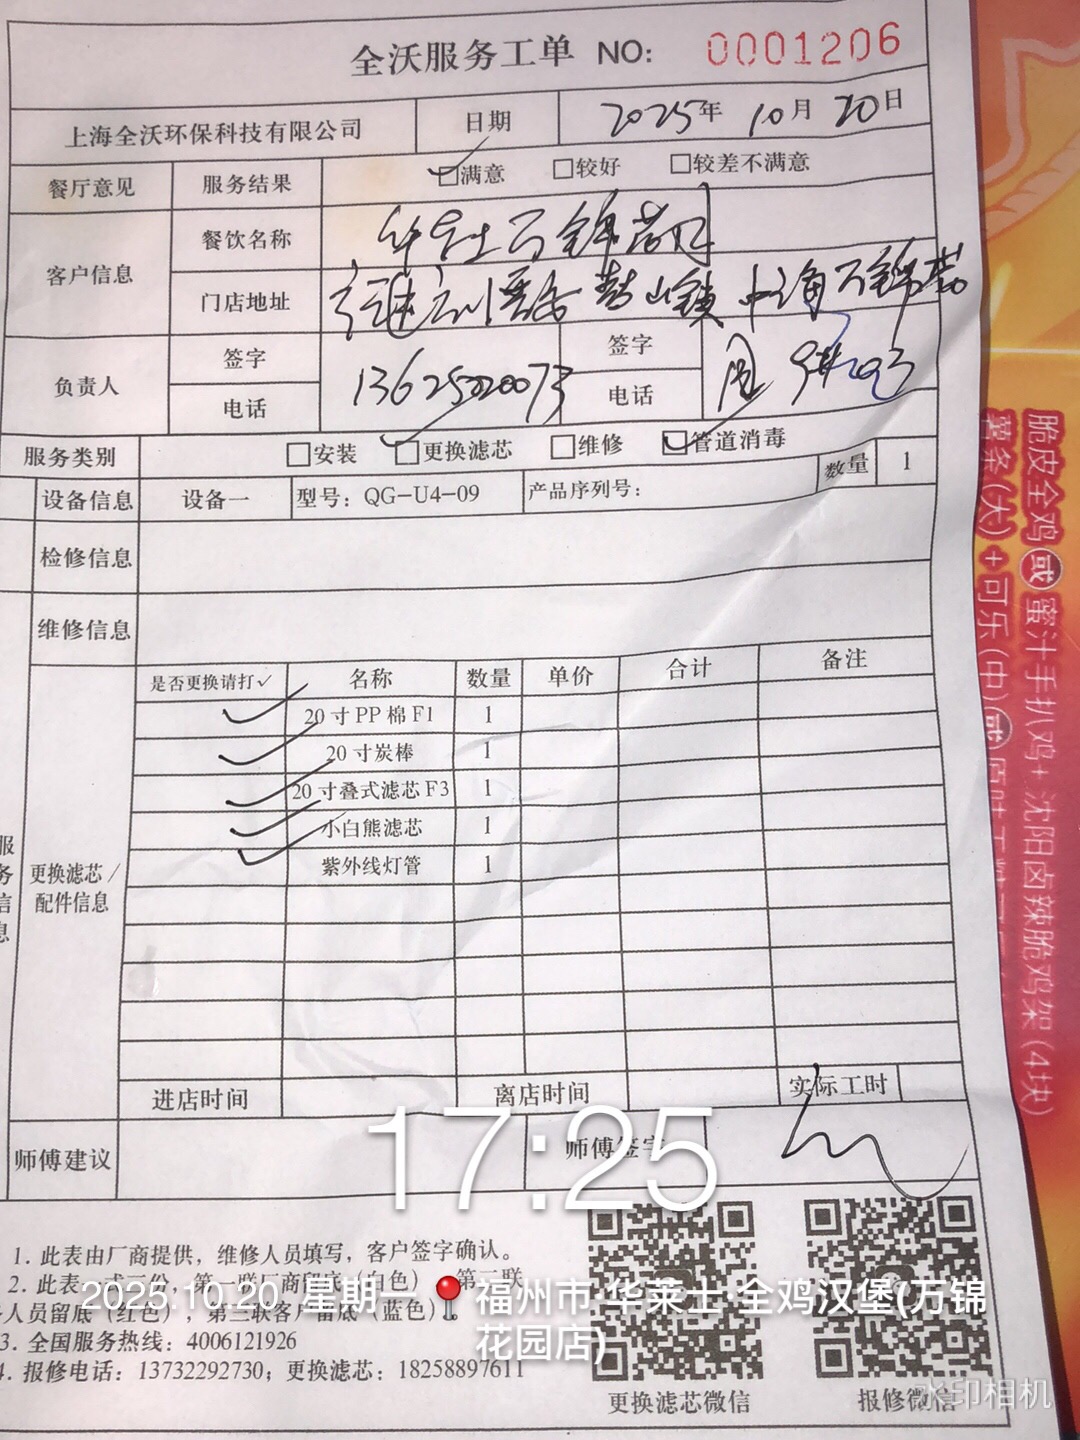 全沃服务工单 NO: 0001206
上海全沃环保科技有限公司 日期 2025年 10月 20日
餐厅意见 服务结果 ☑满意 □较好 □较差不满意
客户信息 餐饮名称 华莱士万锦花园
门店地址 中海万锦花
负责人 签字 签字
电话 13625020073 电话
服务类别 □安装 ☑更换滤芯 □维修 ☑管道消毒
设备信息 设备一 型号：QG-U4-09 产品序列号： 数量 1
检修信息
维修信息
是否更换请打✓ 名称 数量 单价 合计 备注
✓ 20寸PP棉F1 1
✓ 20寸炭棒 1
✓ 20寸叠式滤芯F3 1
✓ 小白熊滤芯 1
✓ 紫外线灯管 1
服务信息
更换滤芯/
配件信息
进店时间 离店时间 实际工时
师傅建议 师傅签字
17:25
1. 此表由厂商提供，维修人员填写，客户签字确认。
2. 此表一式三份，第一联厂商留底（白色） 第二联
人员留底（红色），第三联客户留底（蓝色）。
3. 全国服务热线：4006121926
4. 报修电话：13732292730；更换滤芯：18258897611
更换滤芯微信 报修微信
2025.10.20 星期一 福州市·华莱士·全鸡汉堡(万锦
花园店)
水印相机
脆皮全鸡或蜜汁手扒鸡+沈阳卤辣脆鸡架(4块)
薯条(大)+可乐(中)或